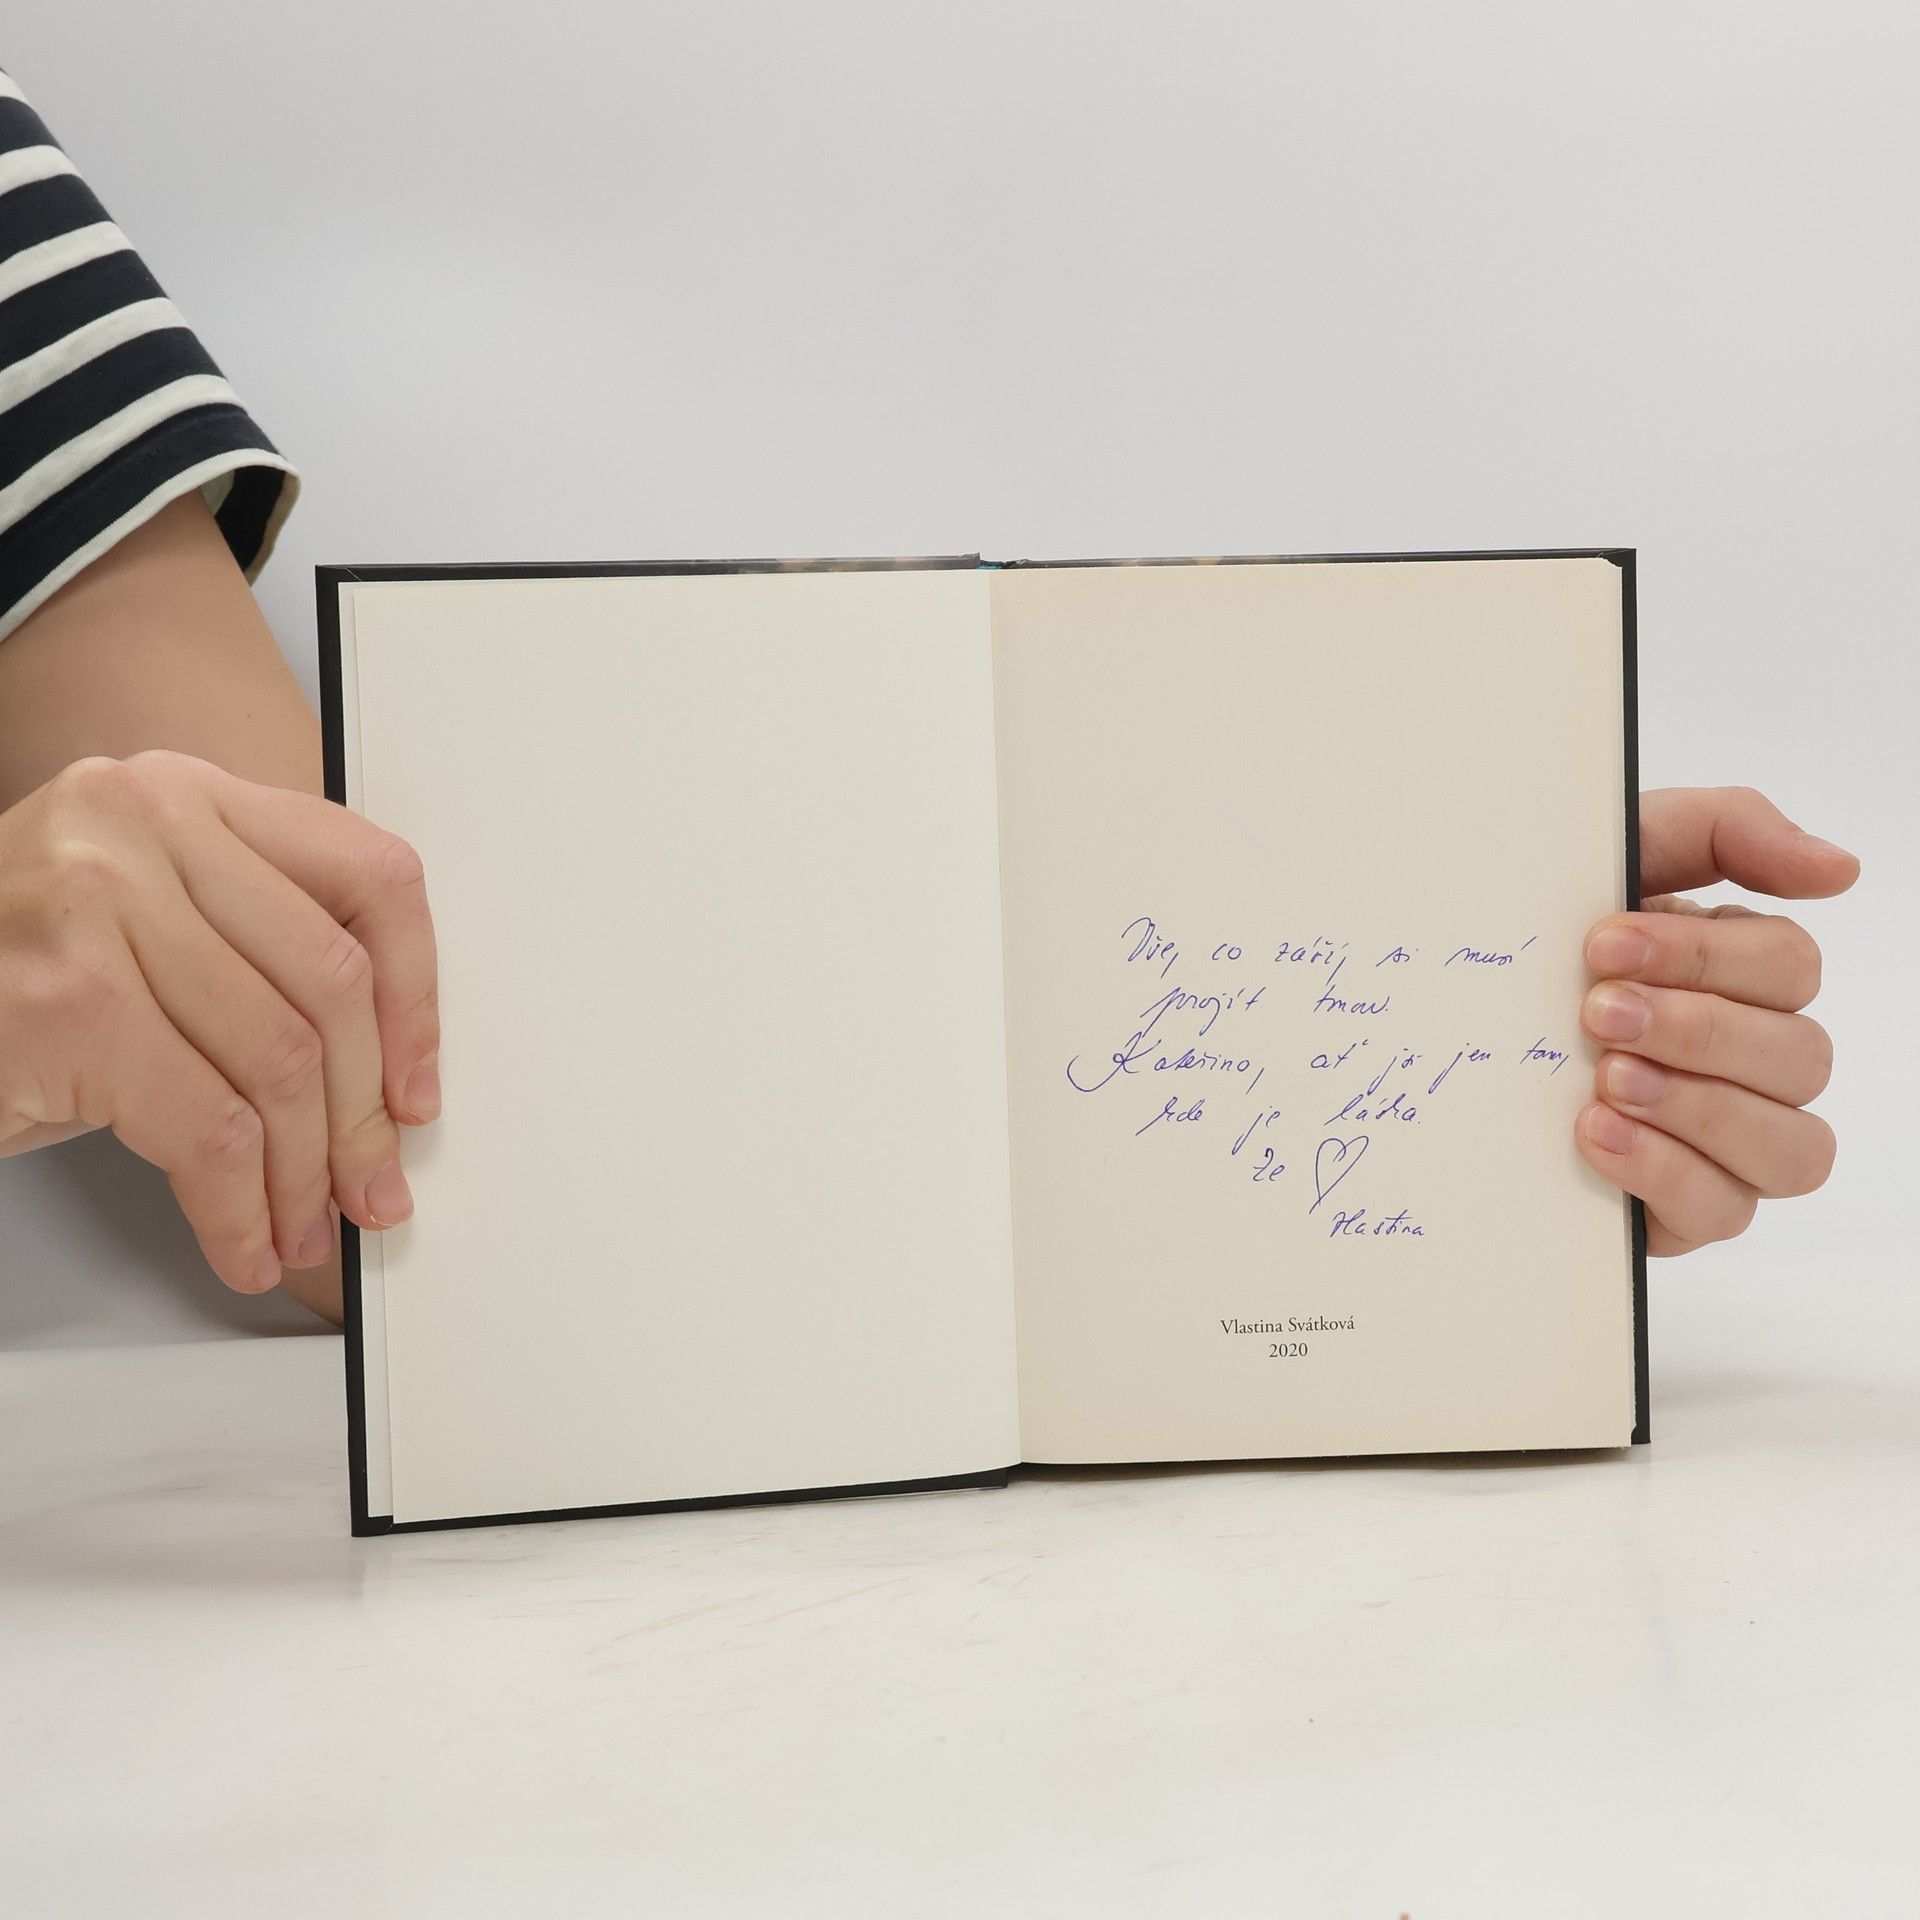 Vše, co září, si musí
projít tmou.
Kateřino, ať jsi jen tam,
kde je láska.
Ze ♡
Vlastina
Vlastina Svátková
2020